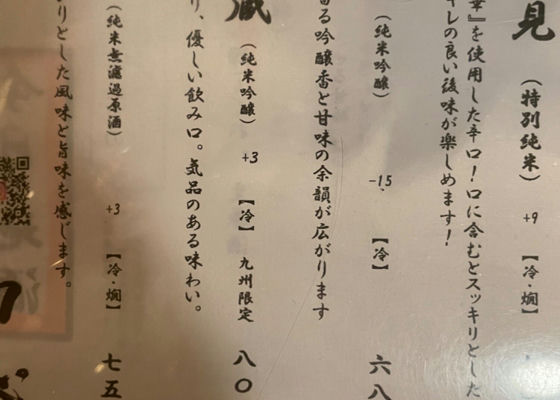 見（特別純米）+9【冷・燗】
』を使用した辛口！口に含むとスッキリとした
キレの良い後味が楽しめます！
（純米吟醸）-15【冷】六八
る吟醸香と甘味の余韻が広がります
蔵（純米吟醸）+3【冷】九州限定 八〇
り、優しい飲み口。気品のある味わい。
（純米無濾過原酒）+3【冷・燗】七五
りとした風味と旨味を感じます。